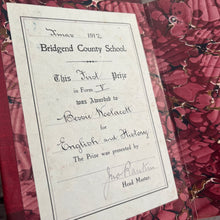 Xmas 1912
Bridgend County School.
This First Prize
in Form V
was Awarded to
Bessie Woolacott
for
English and History
The Prize was presented by
Jno Rankin
Head Master.